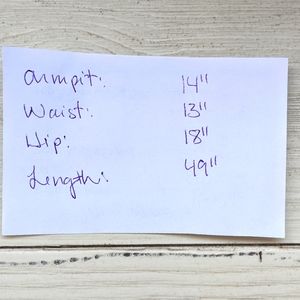 Armpit: 14"
Waist: 13"
Hip: 18"
Length: 49"